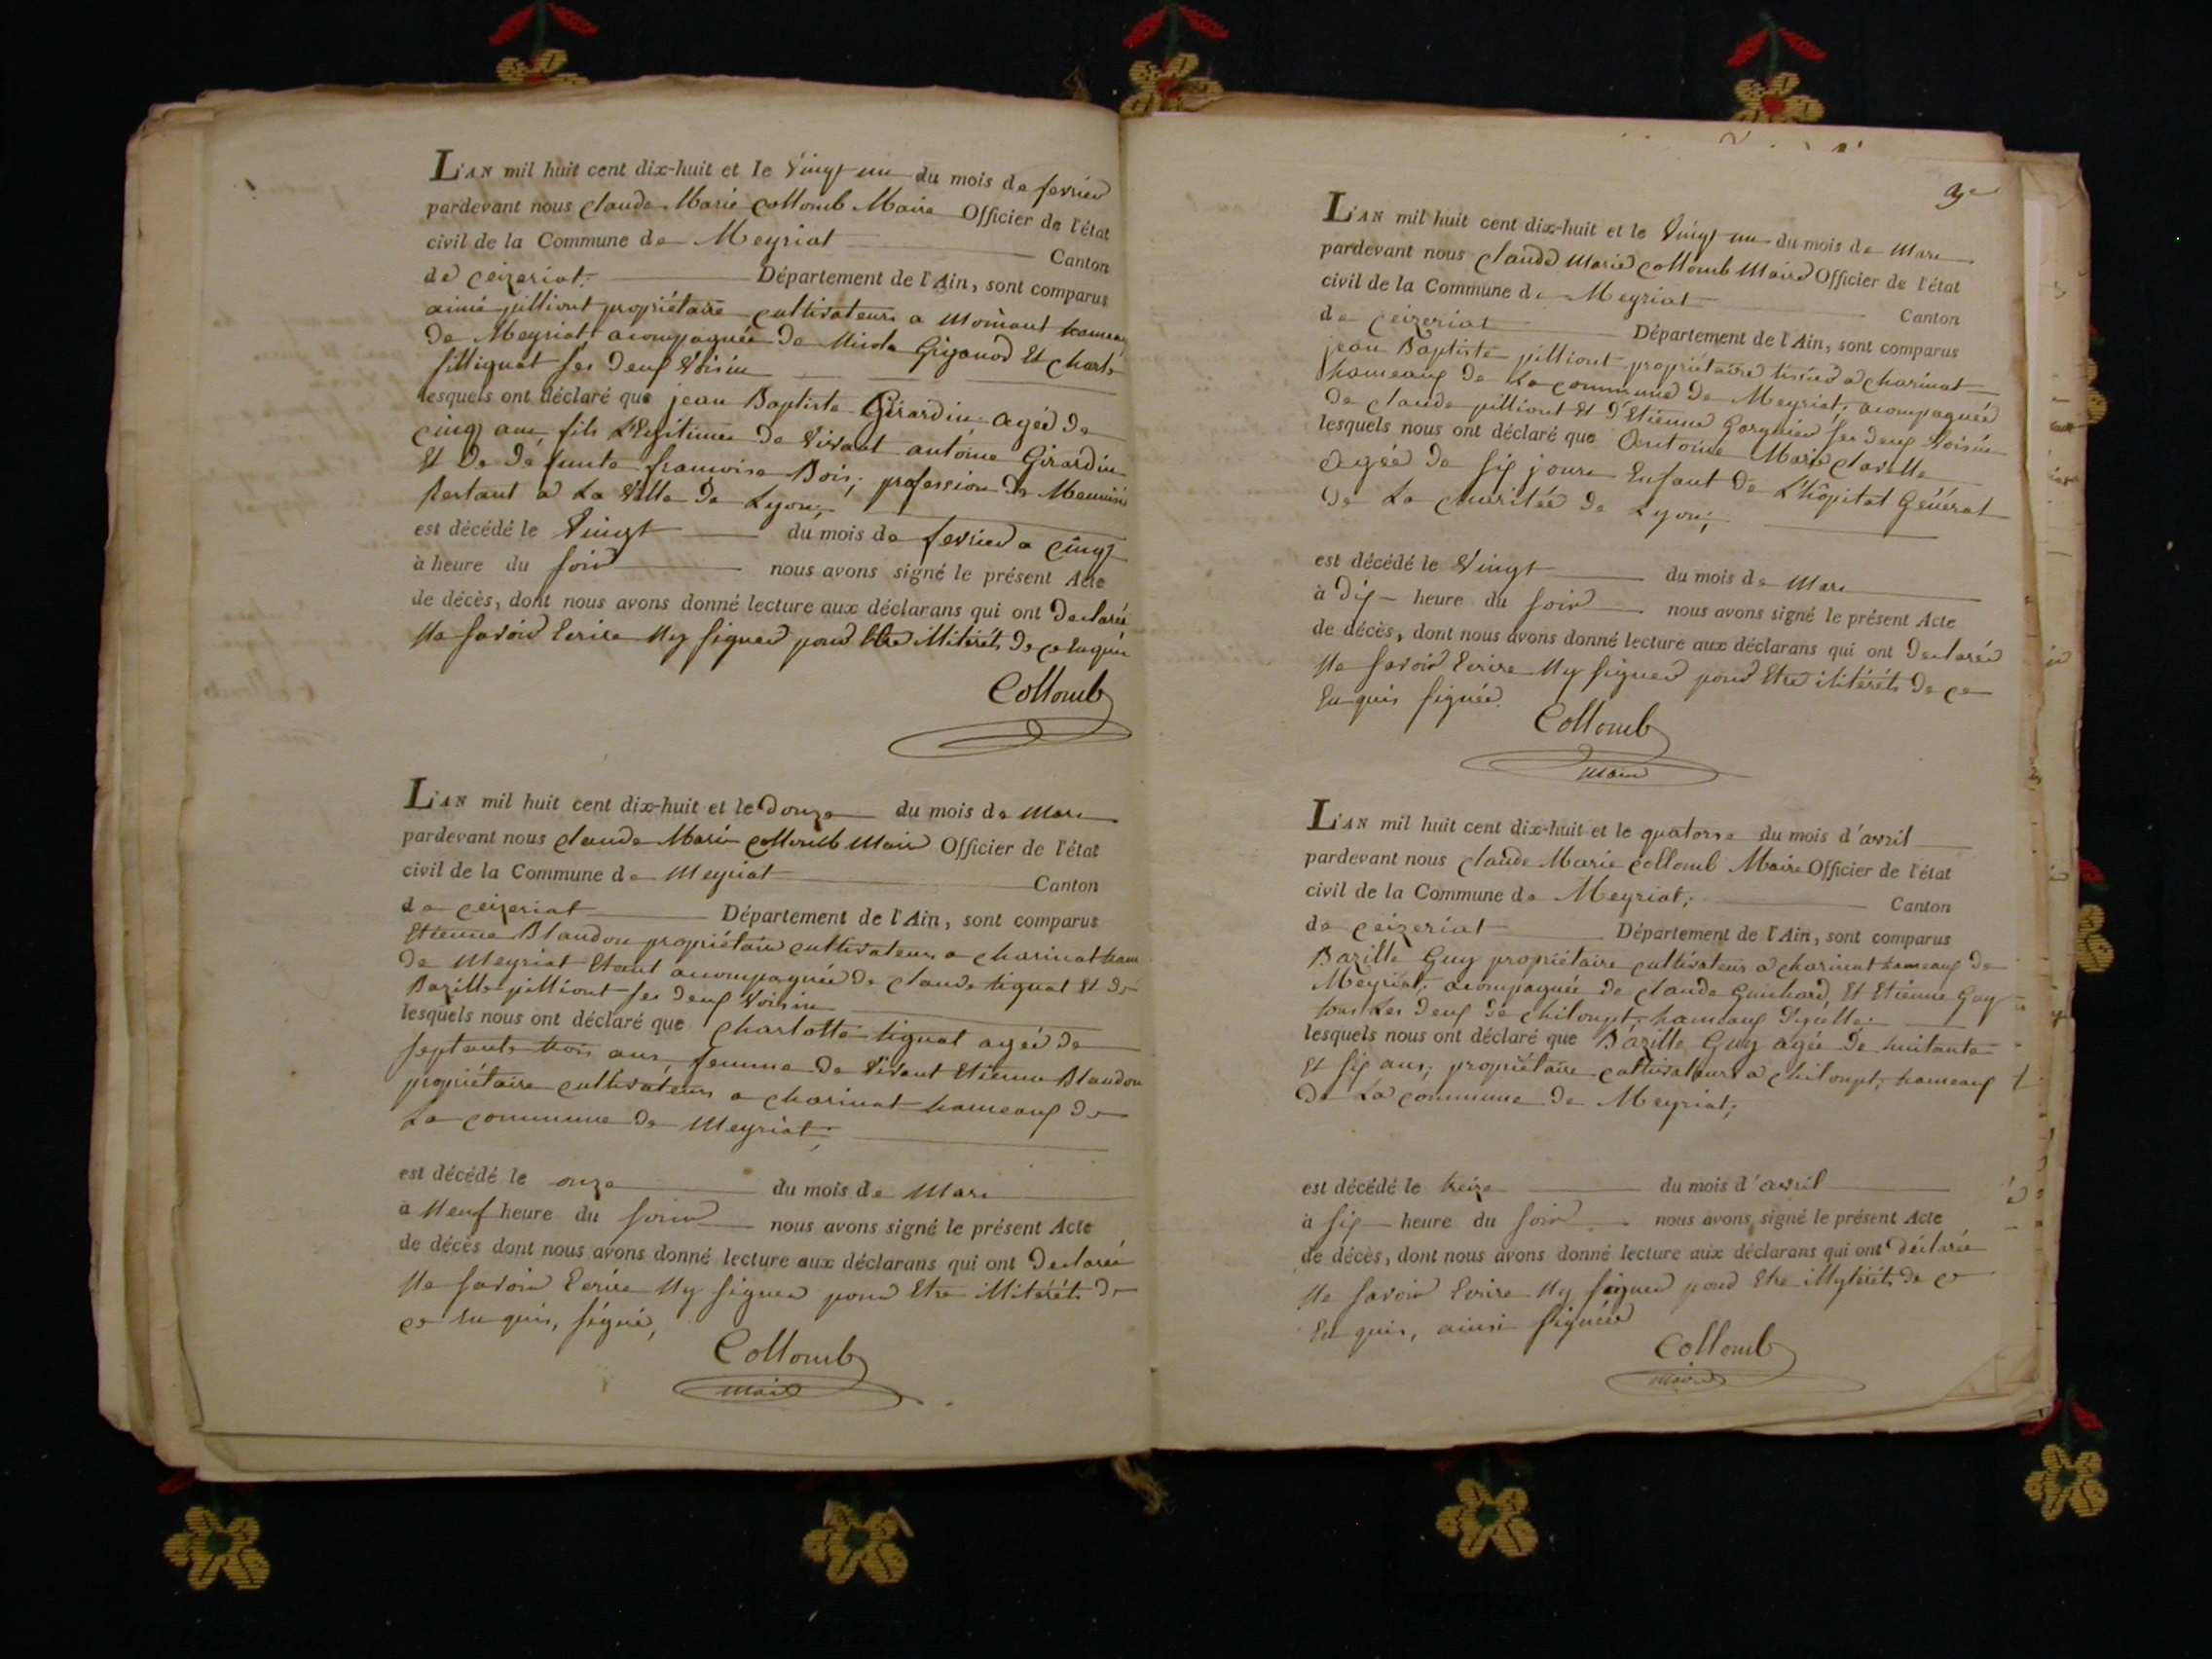 L'AN mil huit cent dix-huit et le Vingt un du mois de fevrier
pardevant nous claude Marie Collomb Maire Officier de l'état
civil de la Commune de Meyriat Canton
de Ceizeriat. Département de l'Ain, sont comparus
aimé pilliont propriétaire cultivateurs a Moinant hameau
de Meyriat, acompagnée de Nicola Et Charle
ses deux Voisin
lesquels ont déclaré que jean Baptiste Girardin agéé de
cinq ans, fils Légitimes de Vivant antoine Girardin
Et de defunte francoise Bois, profession de
Restant a La Ville de Lyon;
est décédé le Vingt du mois de fevrier a cinq
à heure du soir nous avons signé le présent Acte
de décès, dont nous avons donné lecture aux déclarans qui ont declaréé
Ne savoir Ecrire Ny signer pour Etre Mitérés de ce
Collomb
L'AN mil huit cent dix-huit et le douze du mois de Mars
pardevant nous claude Marie Collomb Maire Officier de l'état
civil de la Commune de Meyriat Canton
de Ceizeriat Département de l'Ain, sont comparus
Etienne Blandon propriétaire cultivateurs a charinat ham
de Meyriat Etant acompagnéé de claude tignat Et de
Bazille pilliont ses deux Voisin
lesquels nous ont déclaré que Charlotte tignat agéé de
septante trois ans, femme de Vivant Etienne Blandon
propriétaire cultivateurs a charinat hameaux de
La commune de Meyriat;
est décédé le onze du mois de Mars
a Neuf heure du soir nous avons signé le présent Acte
de décès dont nous avons donné lecture aux déclarans qui ont declaréé
Ne savoir Ecrire Ny signer pour Etre illitérés de
ce Enquis, signé,
Collomb
maire
L'AN mil huit cent dix-huit et le Vingt un du mois de Mars
pardevant nous claude Marie Collomb Maire Officier de l'état
civil de la Commune de Meyriat Canton
de Ceizeriat Département de l'Ain, sont comparus
jean Baptiste pilliont propriétaire a charinat
hameaux de La commune de Meyriat, acompagnéé
de claude pilliont Et d'Etienne ses deux Voisin
lesquels nous ont déclaré que Antoine Marie
agéé de six jours Enfant de L'hôpital Général
de La charitée de Lyon;
est décédé le Vingt du mois de Mars
à dix heure du soir nous avons signé le présent Acte
de décès, dont nous avons donné lecture aux déclarans qui ont declaréé
Ne savoir Ecrire Ny signer pour Etre ilitérés de ce
Enquis signéé.
Collomb
maire
L'AN mil huit cent dix-huit et le quatorse du mois d'avril
pardevant nous claude Marie Collomb Maire Officier de l'état
civil de la Commune de Meyriat; Canton
de Ceizeriat Département de l'Ain, sont comparus
Bazille Guy propriétaire cultivateurs a charinat hameaux de
Meyriat; acompagnée de claude Guichard, Et Etienne Guy
tous Les deux de Chiloupt, hameaux
lesquels nous ont déclaré que Bazille Guy agée de huitante
Et six ans; propriétaire cultivateurs a Chiloupt; hameaux
de La commune de Meyriat;
est décédé le treize du mois d'avril
à six heure du soir nous avons signé le présent Acte
de décès, dont nous avons donné lecture aux déclarans qui ont déclarée
Ne savoir Ecrire Ny signer pour Etre illytérés de ce
Enquis, ainsi signéé
Collomb
maire